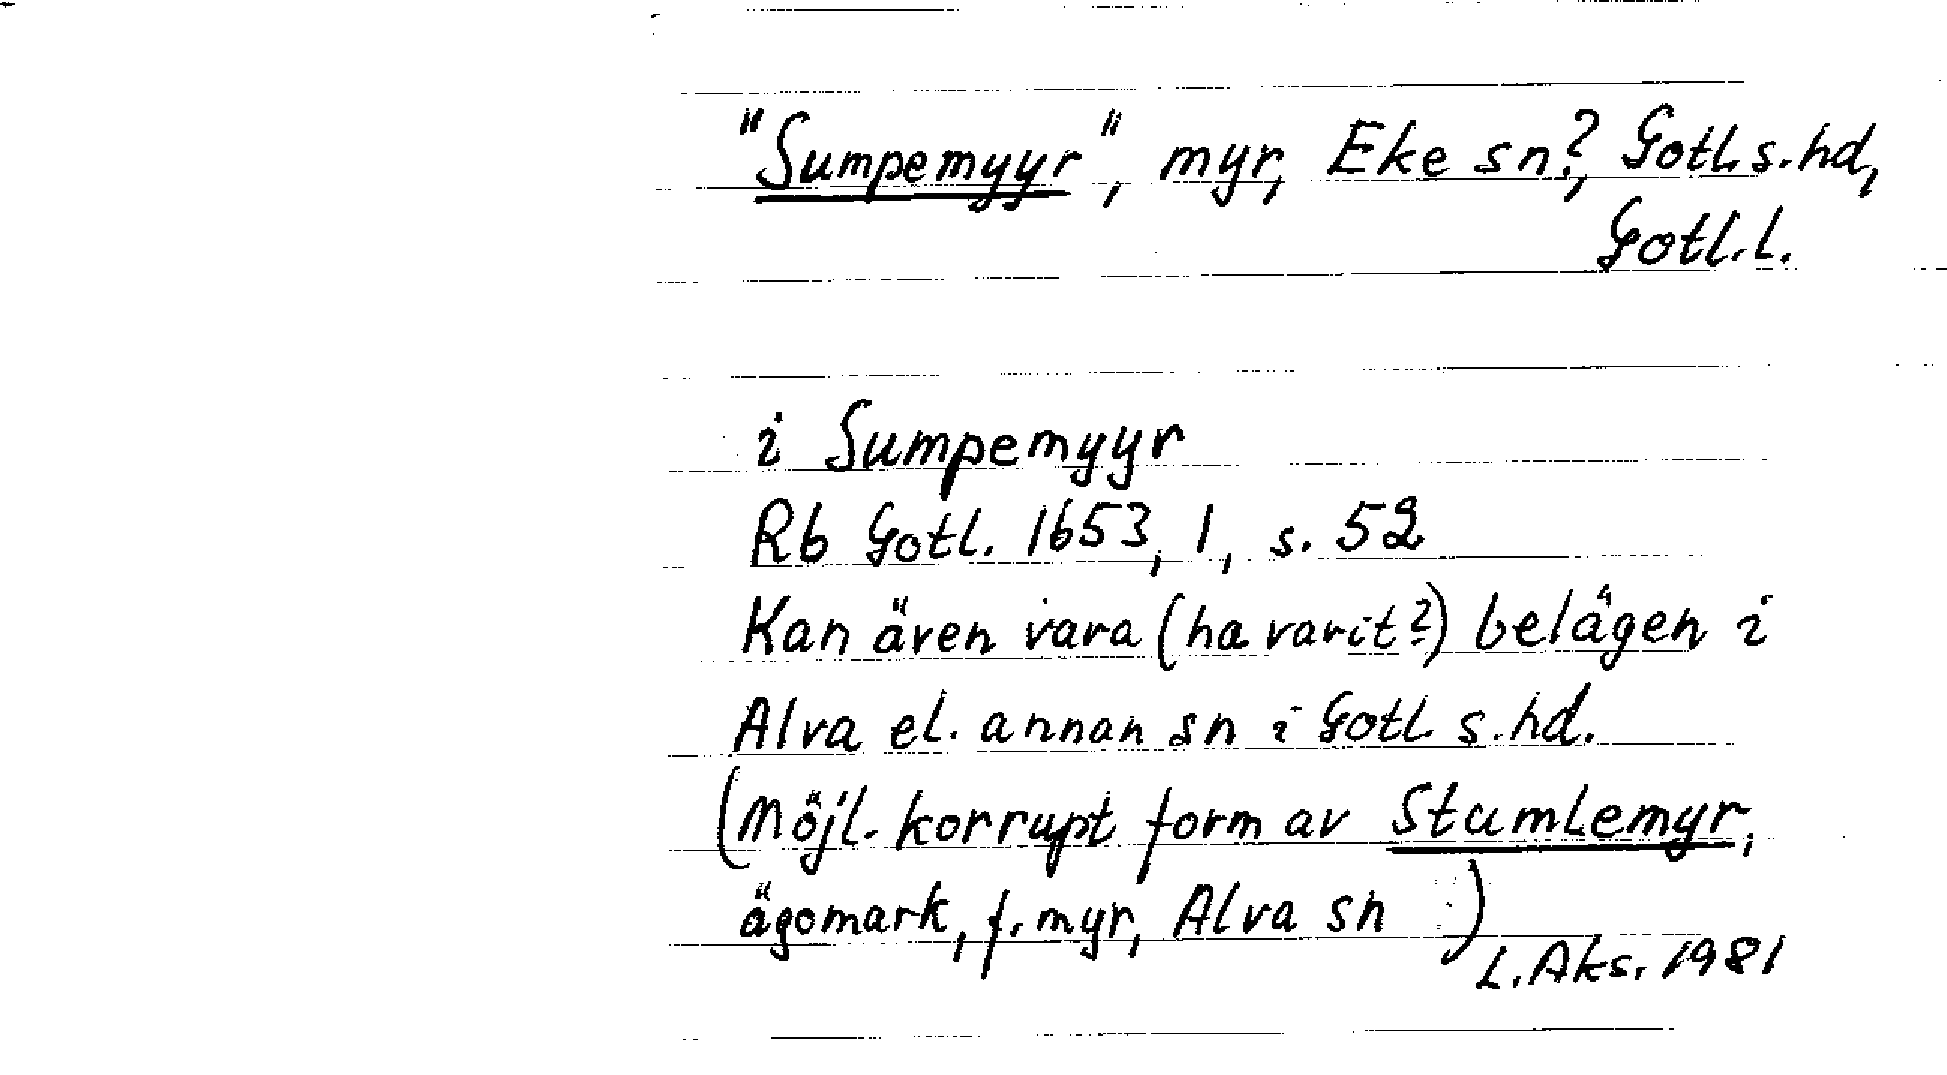 "Sumpemyyr", myr, Eke sn?, Gotl. s. hd,
Gotl. l.
i Sumpemyyr
Rb Gotl. 1653, 1, s. 52
Kan även vara (ha varit?) belägen i
Alva el. annan sn i Gotl. s. hd.
(Möjl. korrupt form av Stumlemyr,
ägomark, f. myr, Alva sn )
L. Aks. 1981